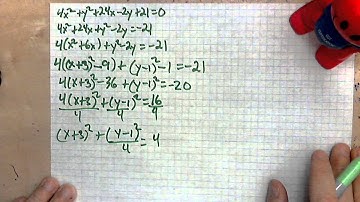 4x²+y²+24x-2y+21=0
4x²+24x+y²-2y=-21
4(x²+6x)+y²-2y=-21
4((x+3)²-9)+(y-1)²-1=-21
4(x+3)²-36+(y-1)²=-20
4(x+3)²+(y-1)²=16
4 4 4
(x+3)²+(y-1)²=4
4